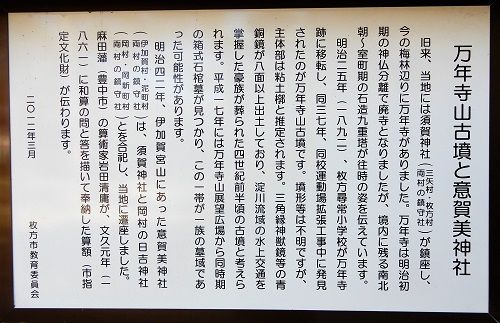 万年寺山古墳と意賀美神社
旧来、当地には須賀神社（三矢村・枚方村両村の鎮守社）が鎮座し、
今の梅林辺りに万年寺がありました。万年寺は明治初
期の神仏分離で廃寺となりましたが、境内に残る南北
朝〜室町期の石造九重塔が往時の姿を伝えています。
明治二五年（一八九二）、枚方尋常小学校が万年寺
跡に移転し、同三七年、同校運動場拡張工事中に発見
されたのが万年寺山古墳です。墳形等は不明ですが、
主体部は粘土槨と推定されます。三角縁神獣鏡等の青
銅鏡が八面以上出土しており、淀川流域の水上交通を
掌握した豪族が葬られた四世紀前半頃の古墳と考えら
れます。平成一七年には万年寺山展望広場から同時期
の箱式石棺墓が見つかり、この一帯が一族の墓域であ
った可能性があります。
明治四二年、伊加賀宮山にあった意賀美神社
（伊加賀村・泥町村両村の鎮守社）は、須賀神社と岡村の日吉神社
（岡村・岡新町村両村の鎮守社）とを合祀し、当地に遷座しました。
麻田藩（豊中市）の算術家岩田清庸が、文久元年（一
八六一）に和算の問と答を描いて奉納した算額（市指
定文化財）が伝わります。
二〇一一年三月
枚方市教育委員会